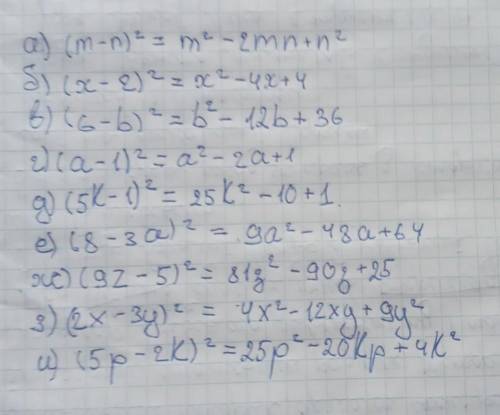 а) (m-n)² = m² - 2mn+n²
б) (x - 2)² = x² - 4x+4
в) (6 - b)² = b² - 12b + 36
г) (a - 1)² = a² - 2a+1
д) (5K - 1)² = 25K² - 10 + 1.
е) (8 - 3a)² = 9a² - 48a+64
ж) (9z - 5)² = 81z² - 90z+25
з) (2x - 3y)² = 4x² - 12xy + 9y²
и) (5p - 2K)² = 25p² - 20Kp + 4K²